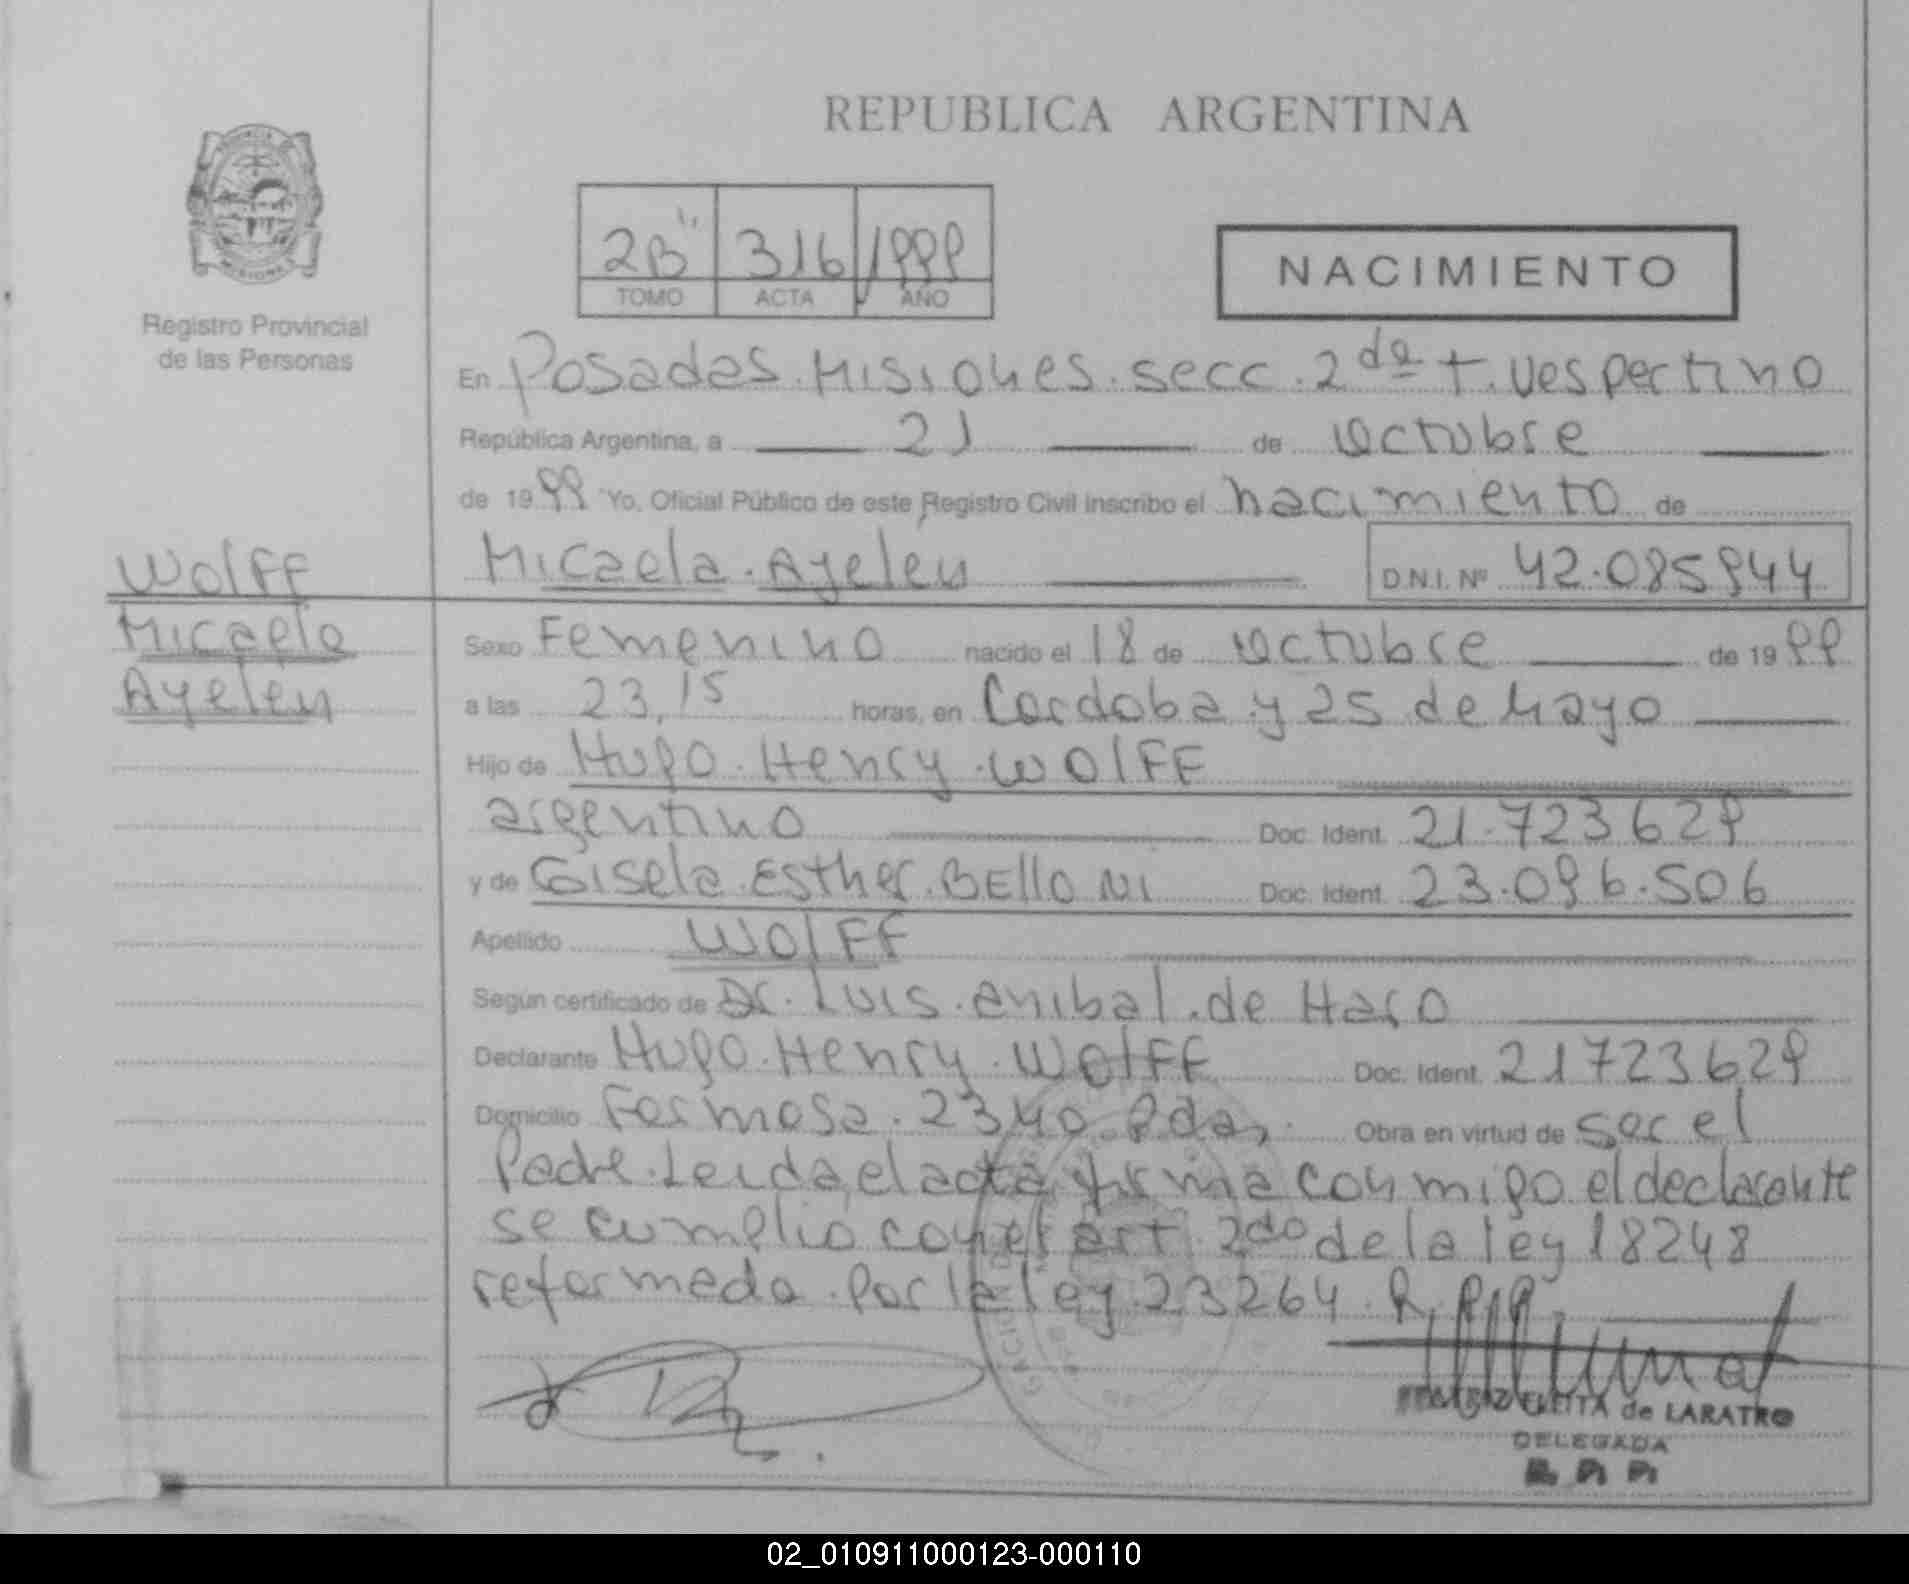 REPUBLICA ARGENTINA
2B" 316 1999
TOMO ACTA AÑO
NACIMIENTO
Registro Provincial
de las Personas
En Posadas. Misiones. secc. 2da t. vespertino
República Argentina, a 21 de octubre
de 1999 Yo, Oficial Público de este Registro Civil inscribo el nacimiento de
Wolff
Micaela. Ayelén D.N.I. Nº 42.085944
Micaela
Ayelén
Sexo Femenino nacido el 18 de octubre de 1999
a las 23,15 horas, en Cordoba y 25 de Mayo
Hijo de Hugo. Henry. Wolff
argentino Doc. Ident. 21.723629
y de Gisela. Esther. BELLONI Doc. Ident. 23.096.506
Apellido WOLFF
Según certificado de Dr. Luis. anibal. de Haro
Declarante Hugo. Henry. Wolff Doc. Ident. 21723629
Domicilio Formosa. 2340. Pdas, Obra en virtud de ser el
Padre. Leida el acta firma conmigo el declarante
se cumplio con el art 2do de la ley 18248
reformada. por la ley 23264. R.P.P.
ELEITA de LARATRO
DELEGADA
R. P. P.
02_010911000123-000110